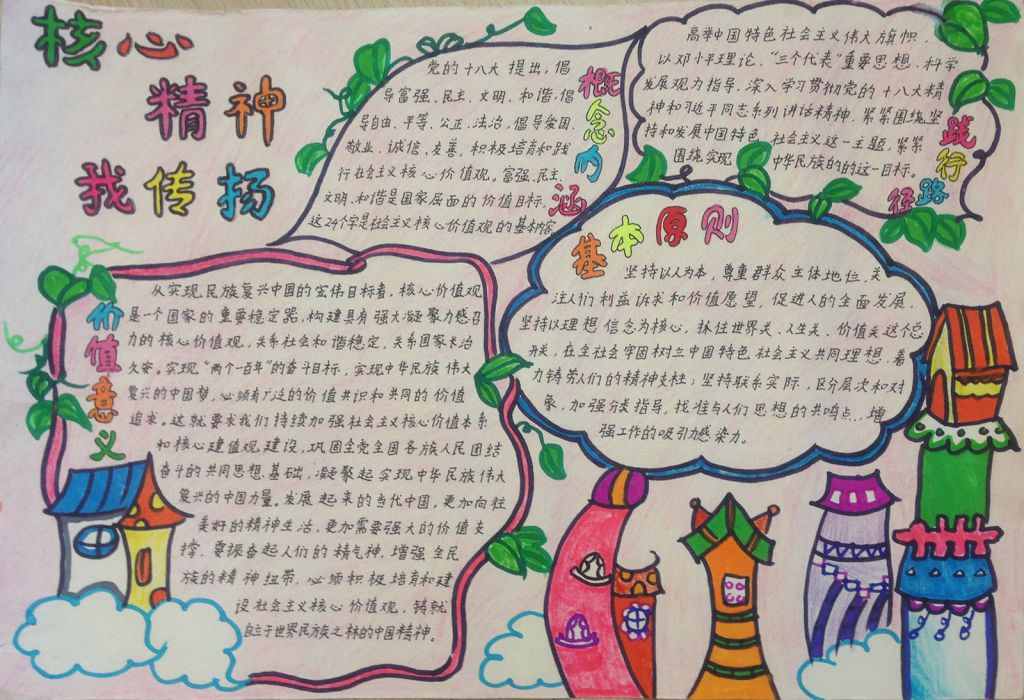 核心
精神
我传扬
概念内涵
党的十八大提出，倡
导富强、民主、文明、和谐，倡
导自由、平等、公正、法治，倡导爱国、
敬业、诚信、友善，积极培育和践
行社会主义核心价值观。富强、民主、
文明、和谐是国家层面的价值目标，
这24个字是社会主义核心价值观的基本内容。
践行路径
高举中国特色社会主义伟大旗帜，
以邓小平理论，“三个代表”重要思想、科学
发展观为指导，深入学习贯彻党的十八大精
神和习近平同志系列讲话精神，紧紧围绕坚
持和发展中国特色社会主义这一主题，紧紧
围绕实现中华民族的的这一目标。
基本原则
坚持以人为本，尊重群众主体地位，关
注人们利益诉求和价值愿望，促进人的全面发展，
坚持以理想信念为核心，抓住世界关、人生关、价值关这个总
开关，在全社会牢固树立中国特色社会主义共同理想，着
力铸劳人们的精神支柱；坚持联系实际，区分层次和对
象，加强分类指导，找准与人们思想的共鸣点，增
强工作的吸引力感染力。
价值意义
从实现民族复兴中国的宏伟目标看，核心价值观
是一个国家的重要稳定器，构建具有强大凝聚力感召
力的核心价值观，关系社会和谐稳定，关系国家长治
久安。实现“两个一百年”的奋斗目标，实现中华民族伟大
复兴的中国梦，必须有广泛的价值共识和共同的价值
追求。这就要求我们持续加强社会主义核心价值本系
和核心建值观建设，巩固全党全国各族人民团结
奋斗的共同思想基础，凝聚起实现中华民族伟大
复兴的中国力量。发展起来的当代中国，更加向往
美好的精神生活，更加需要强大的价值支
撑，要振奋起人们的精气神，增强全民
族的精神纽带，必须积极培育和建
设社会主义核心价值观，铸就
自立于世界民族之林的中国精神。